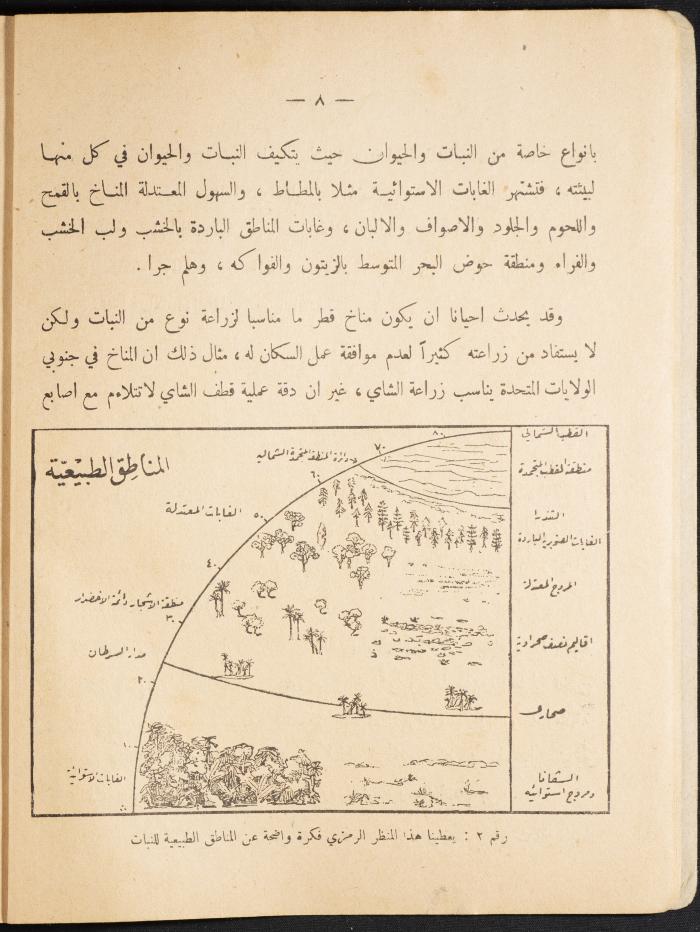 — ٨ —
بانواع خاصة من النبات والحيوان حيث يتكيف النبات والحيوان في كل منها
لبيئته ، فتشتهر الغابات الاستوائية مثلا بالمطاط ، والسهول المعتدلة المناخ بالقمح
واللحوم والجلود والاصواف والالبان ، وغابات المناطق الباردة بالخشب ولب الخشب
والفراء ومنطقة حوض البحر المتوسط بالزيتون والفواكه ، وهلم جرا .
وقد يحدث احيانا ان يكون مناخ قطر ما مناسبا لزراعة نوع من النبات ولكن
لا يستفاد من زراعته كثيراً لعدم موافقة عمل السكان له ، مثال ذلك ان المناخ في جنوبي
الولايات المتحدة يناسب زراعة الشاي ، غير ان دقة عملية قطف الشاي لا تتلاءم مع اصابع
المناطق الطبيعيّة
القطب الشمالي
٨٠
٧٠
دائرة المنطقة المتجمدة الشمالية
منطقة القطب المتجمدة
٦٠
التندرا
الغابات المعتدلة
٥٠
الغابات الصنوبرية الباردة
٤٠
المروج المعتدلة
منطقة الاشجار دائمة الاخضرار
٣٠
اقاليم نصف صحراوية
مدار السرطان
٢٠
صحارى
١٠
الغابات الاستوائية
السفانا
ومروج استوائيه
رقم ٢ : يعطينا هذا المنظر الرمزي فكرة واضحة عن المناطق الطبيعية للنبات